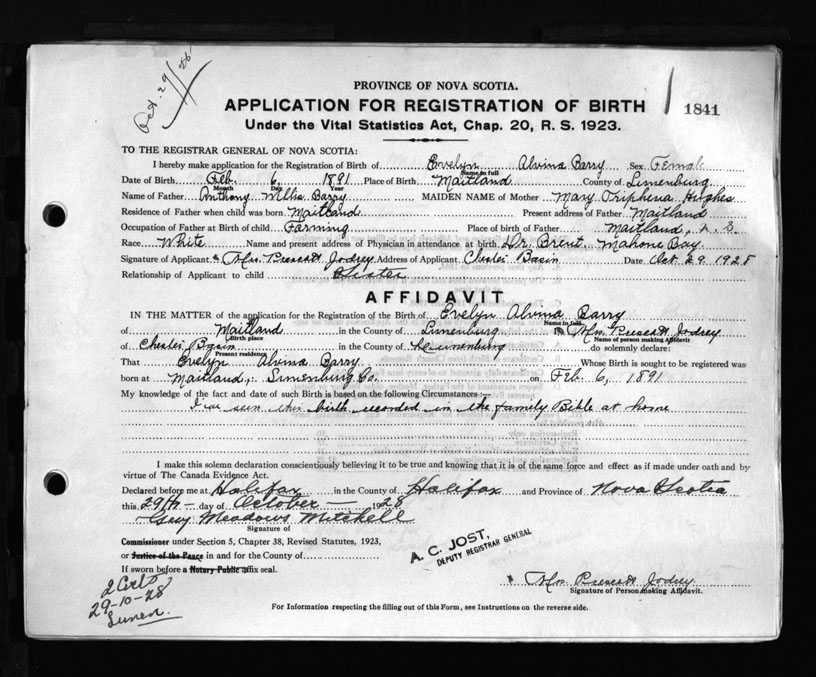 Oct. 29/28
PROVINCE OF NOVA SCOTIA.
APPLICATION FOR REGISTRATION OF BIRTH
1841
Under the Vital Statistics Act, Chap. 20, R. S. 1923.
TO THE REGISTRAR GENERAL OF NOVA SCOTIA:
I hereby make application for the Registration of Birth of Evelyn Alvina Barry Sex Female
Name in full
Date of Birth Feb. 6, 1891 Place of Birth Maitland County of Lunenburg
Month Day Year
Name of Father Anthony Barry MAIDEN NAME of Mother Mary Triphena Hughes
Residence of Father when child was born Maitland Present address of Father Maitland
Occupation of Father at Birth of child Farming Place of birth of Father Maitland, N. S.
Race White Name and present address of Physician in attendance at birth Dr. Mahone Bay
Signature of Applicant Mrs. Prescott Jodrey Address of Applicant Chester Basin Date Oct 29 1928
Relationship of Applicant to child Sister
AFFIDAVIT
IN THE MATTER of the application for the Registration of the Birth of Evelyn Alvina Barry
Name in full
of Maitland in the County of Lunenburg I, Mrs. Prescott Jodrey
Birth place Name of person making Affidavit
of Chester Basin in the County of Lunenburg do solemnly declare:
Present residence
That Evelyn Alvina Barry Whose Birth is sought to be registered was
born at Maitland, Lunenburg Co. on Feb. 6, 1891
My knowledge of the fact and date of such Birth is based on the following Circumstances :—
I've seen this birth recorded in the family Bible at home
I make this solemn declaration conscientiously believing it to be true and knowing that it is of the same force and effect as if made under oath and by
virtue of The Canada Evidence Act.
Declared before me at Halifax in the County of Halifax and Province of Nova Scotia
this 29th day of October 1928
Guy Meadows Mitchell
Signature of
Commissioner under Section 5, Chapter 38, Revised Statutes, 1923,
or Justice of the Peace in and for the County of
If sworn before a Notary Public affix seal.
A. C. JOST,
DEPUTY REGISTRAR GENERAL
Mrs Prescott Jodrey
Signature of Person making Affidavit.
2 Certs
29-10-28
Lunen.
For Information respecting the filling out of this Form, see Instructions on the reverse side.